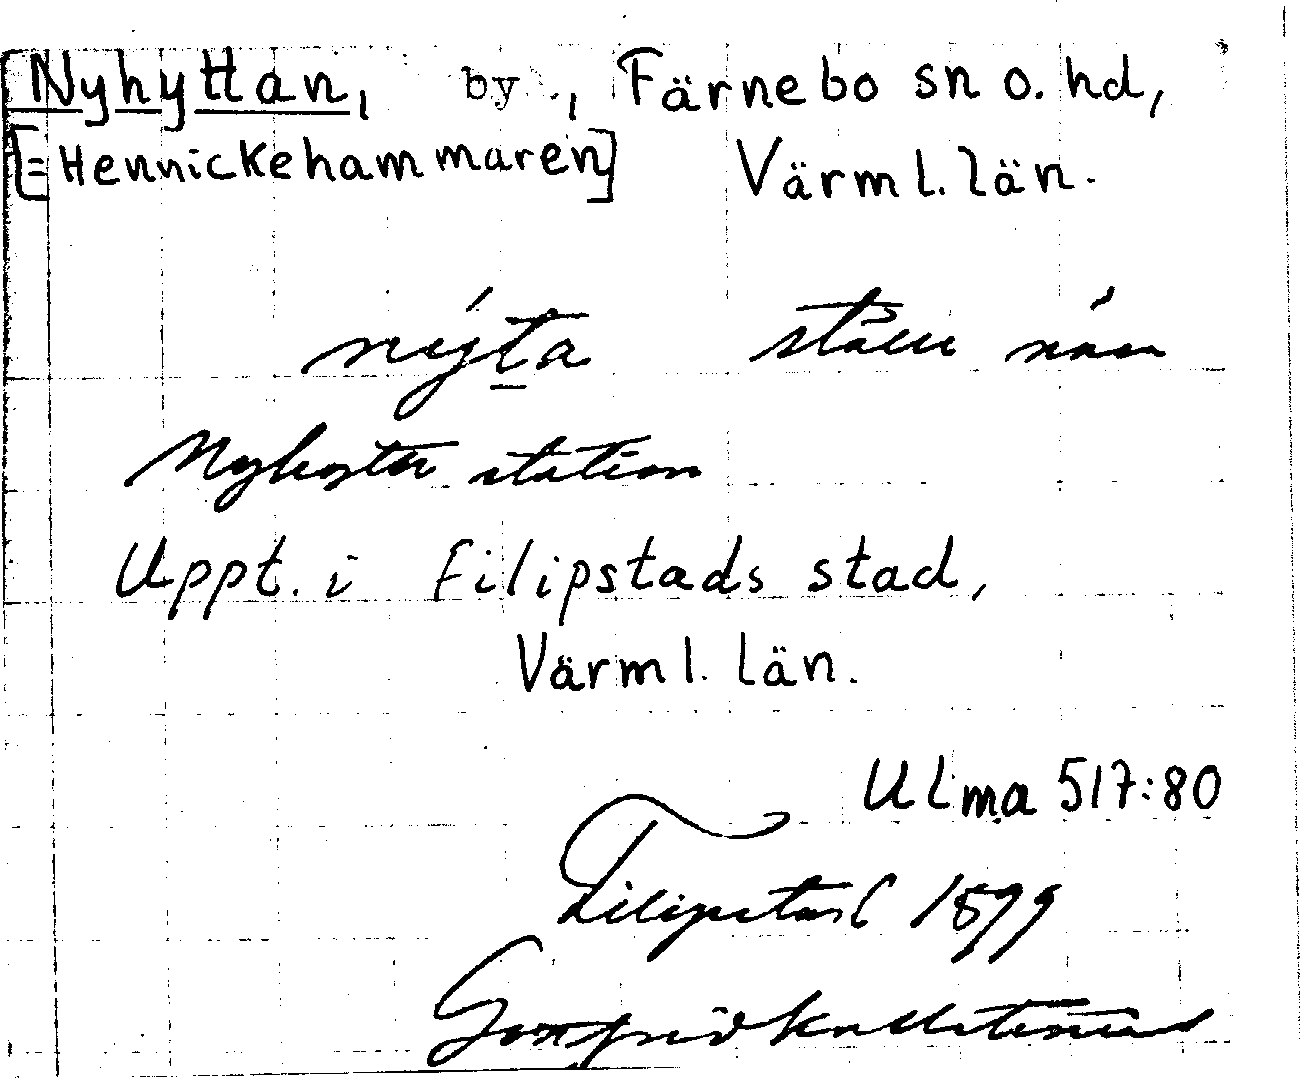 [Nyhyttan, by, Färnebo sn o. hd,
[= Hennickehammaren] Värml. län.
Nyhyttn station
Uppt. i Filipstads stad,
Värml. län.
ULma 517:80
Filipstad 1899
Gottfrid Kallstenius